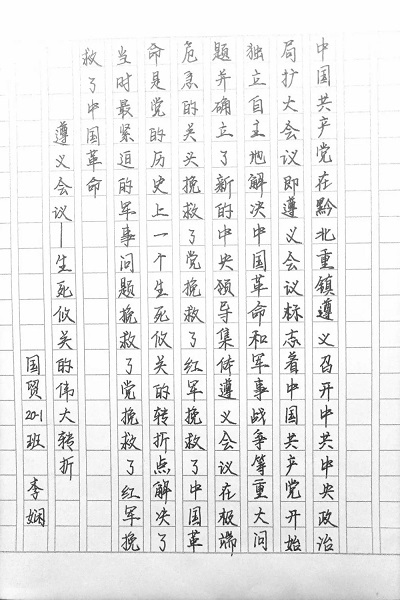 中国共产党在黔北重镇遵义召开中共中央政治
局扩大会议即遵义会议标志着中国共产党开始
独立自主地解决中国革命和军事战争等重大问
题并确立了新的中央领导集体遵义会议在极端
危急的关头挽救了党挽救了红军挽救了中国革
命是党的历史上一个生死攸关的转折点解决了
当时最紧迫的军事问题挽救了党挽救了红军挽
救了中国革命
遵义会议—生死攸关的伟大转折
国贸20-1班 李娴